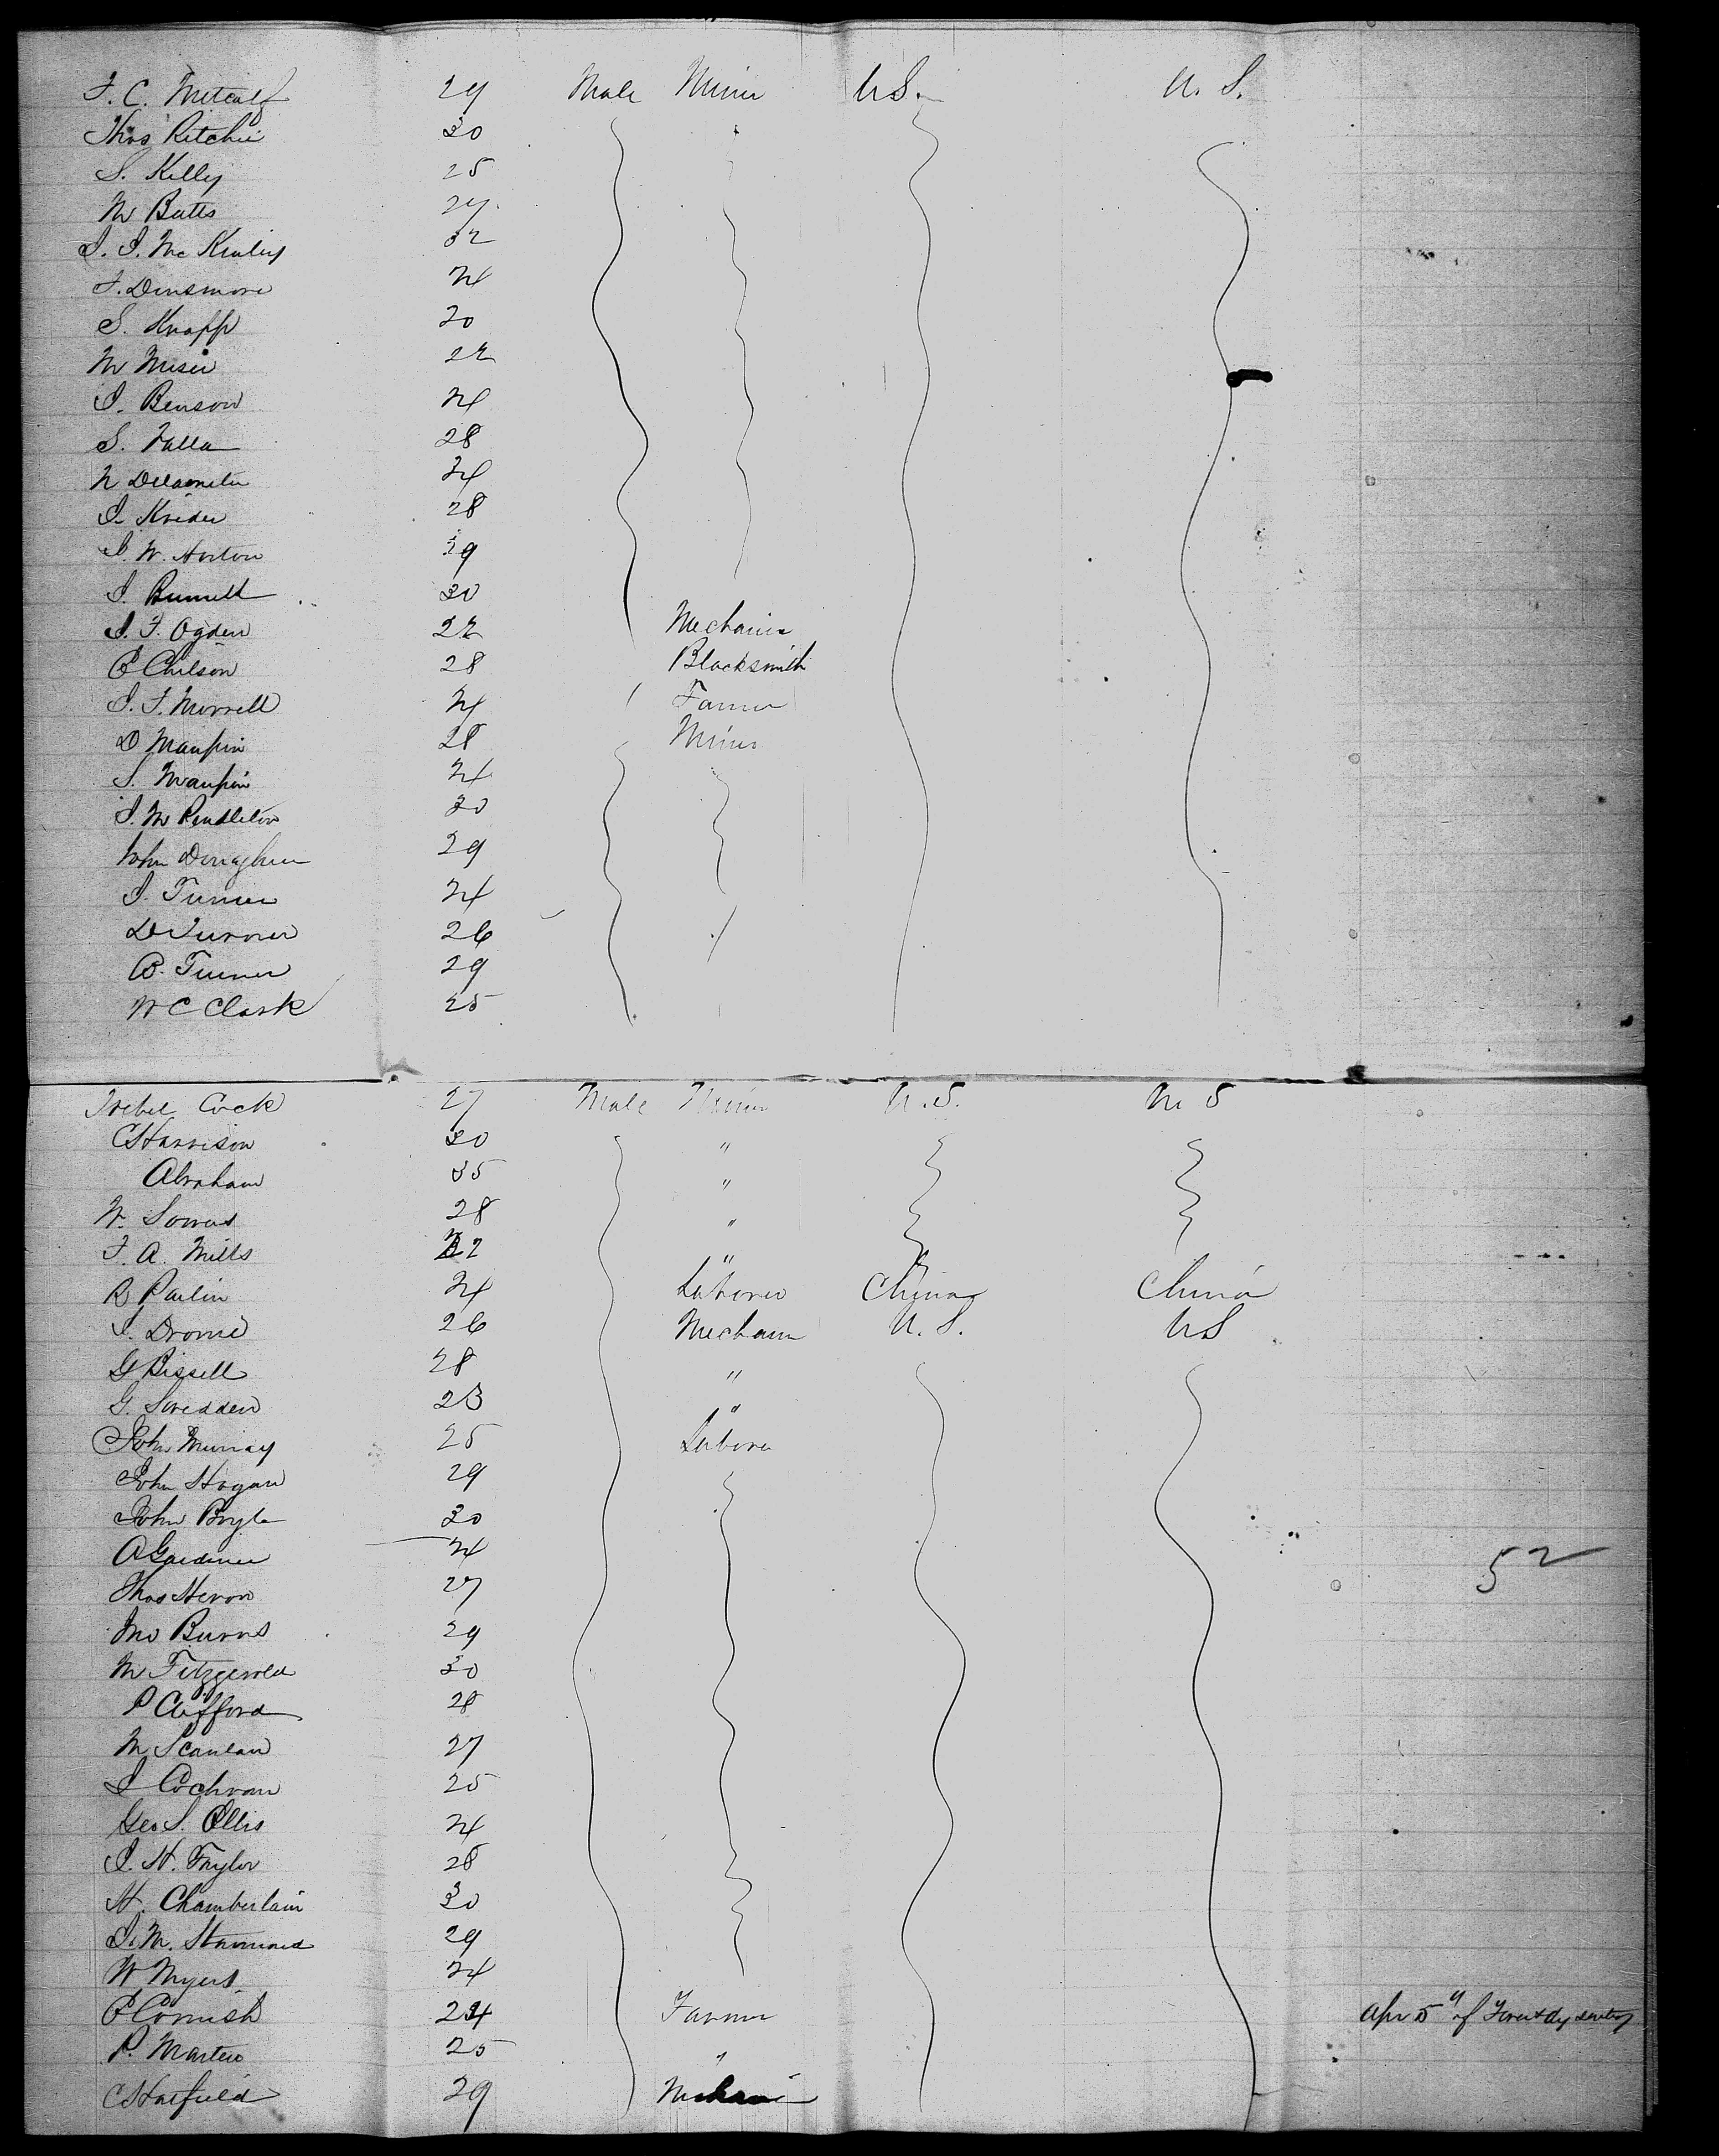 F. C. Metcalf 29 Male Miner U.S. U. S.
Thos Ritchie 30
S. Kelly 25
M Batts 27
J. J. McKinley 32
F. Dinsmore 24
S. Knapp 20
M Miser 22
J. Benson 24
S. Falla 28
N Delameter 24
J. Krider 28
J. W. Horton 39
J. Burnett 30
J. F. Ogden 22 Mechanic
C Chilson 28 Blacksmith
J. F. Morrell 24 Farmer
D Maupin 28 Miner
S. Maupin 24
J. M Pendleton 30
John Donaghue 29
J. Turner 24
D Turner 26
B. Turner 29
W C Clark 25
Cock 27 Male Miner U.S. U S
C Harrison 30 "
Abraham 35 "
W. 28 "
F. A. Mills 22 "
B Parlin 24 Laborer China China
J. Drome 26 Mechanic U. S. U S
G Bissell 28 "
G. 23 "
John Murray 25 Laborer
John Hogan 29
John Boyle 30
A Gardiner 24
Thos Heron 27 52
Jno Burns 29
M Fitzgerald 30
P Clifford 28
M Scanlan 27
J Cochran 25
Geo S. Ellis 24
J. H. Taylor 28
H. Chamberlain 30
J. M. 29
W Myers 24
C Cornish 24 Farmer Apr 5" of
P. Martin 25 "
C Hatfield 29 Mechanic